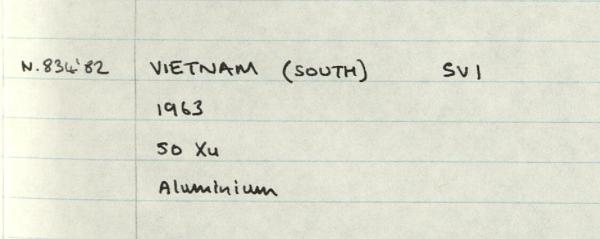 N.834'82 VIETNAM (SOUTH) SV1
1963
50 Xu
Aluminium